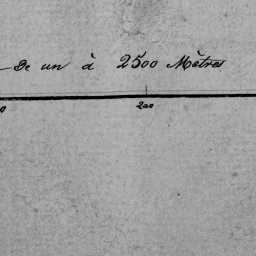 De un à 2500 Mètres
0 200